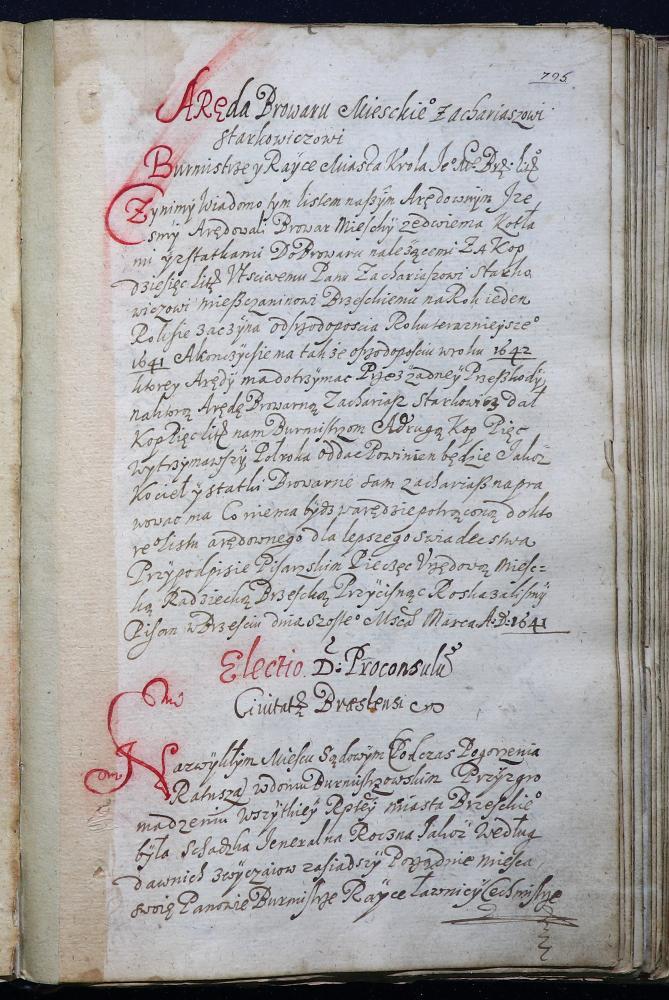 795.
ARęda Browaru Mieschie° Zachariaszowi
Starkowiczowi
Burmistrze y Rayce Miasta Krola Je° Mᶜⁱ Brz: Litᵉ
Czynimy Wiadomo tym listem naszym Arędownym Jze
smy Arędowali Browar Mieschy zedwiema Kotła
mi y zstatkami DoBrowaru należącemi ZA Kop
dziesięc Litᵉ Vtsciwemu Panu Zachariaszowi Starko
wiczowi mieszczaninowi Brzeskiemu na Rok ieden
Rok sie zaczyna odszodoposcia Roku teraznieysze°
1641 A konczycsie ma także oszodoposciu wroku 1642
ktorey Arędy ma dotrzymac Przez żadney Przeszkody,
naktorą Arędę Browarną Zachariasz Starkowicz dał
Kop Pięc Litᵉ nam Burmistrzom A drugą Kop Pięc
wytrzymawszy Połroka oddac Powinien będzie Jakoż
Kocieł y statki Browarne sam Zachariasz napra
wowac ma Co niema bydz warędzie potrącono, dokto
re° Listu arędownego dla lepszego swiadectwa
Przypodpisie Pisarskim Pieczęc Vrzędową Miesc=
ką Radziecką Brzeską Przycisnąc Roskazalismy
Pisan w Brzesciu dnia szoste° Msca Marca A:D: 1641
Electio D: Proconsulū
Ciuitatᵉ Bræstensi
Nazwykłym Miescu Sądowym Podczas Pogorzenia
Ratusza wdomu Burmistrzowskim Przyzgro
madzeniu Wszytkiey Rptey miasta Brzeskie°
była Schadzka Jeneralna Roczna Jakoż Według
dawnich zwyczaiow zasiadszy Porządnie miesca
swoię Panowie Burmistrze Rayce ławnicy Cechmistrze